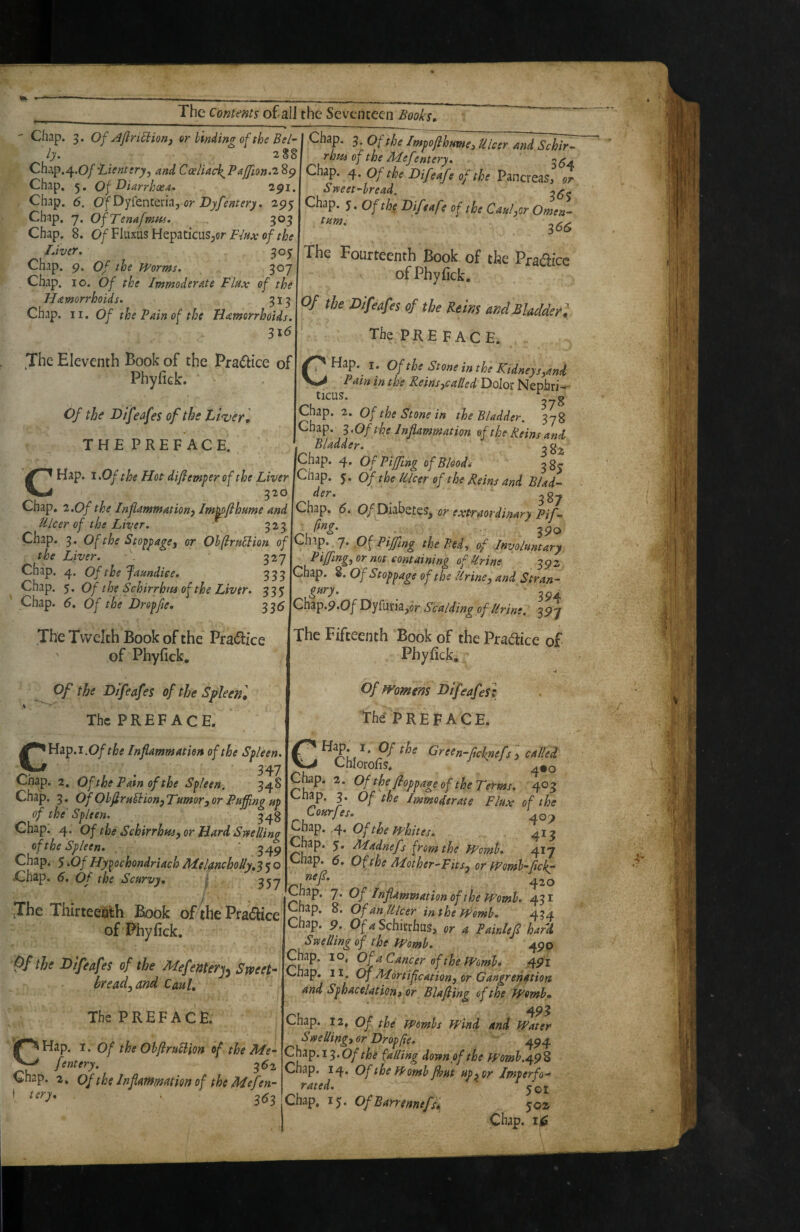 The Contents of all the Seventeen Books.
Chap. 3. Of Aſtriction, or binding of the Bel-
ly. 288
Chap.4.Of Lientery, and Cœliack Paſſion.289
Chap. 5. Of Diarrhœa. 291.
Chap. 6. Of Dyſenteria, or Dyſentery. 295
Chap. 7. Of Tenaſmus. 303
Chap. 8. Of Fluxus Hepaticus,or Flux of the
Liver. 305
Chap. 9. Of the Worms. 307
Chap. 10. Of the Immoderate Flux of the
Hæmorrhoids. 313
Chap. 11. Of the Pain of the Hæmorrhoids.
316
The Eleventh Book of the Practice of
Phyſick.
Of the Diſeaſes of the Liver.
THE PREFACE.
CHap. 1.Of the Hot diſtemper of the Liver
320
Chap. 2.Of the Inflammation, Impoſthume and
Ulcer of the Liver. 323
Chap. 3. Of the Stoppage, or Obſtruction of
the Liver. 327
Chap. 4. Of the Jaundice. 333
Chap. 5. Of the Schirrhus of the Liver. 335
Chap. 6. Of the Dropſie. 336
The Twelth Book of the Practice
of Phyſick.
Of the Diſeaſes of the Spleen.
The PREFACE.
CHap.1.Of the Inflammation of the Spleen.
347
Chap. 2. Of the Pain of the Spleen. 348
Chap. 3. Of Obſtruction,Tumor,or Puffing up
of the Spleen. 348
Chap. 4. Of the Schirrhus, or Hard Swelling
of the Spleen. 349
Chap. 5.Of Hypochondriach Melancholly.350
Chap. 6. Of the Scurvy. 357
The Thirteenth Book of the Practice
of Phyſick.
Of the Diſeaſes of the Meſentery, Sweet-
bread, and Caul.
The PREFACE.
CHap. 1. Of the Obſtruction of the Me-
ſentery. 362
Chap. 2. Of the Inflammation of the Meſen-
tery. 363
Chap. 3. Of the Impoſthume, Ulcer and Schir-
rhus of the Meſentery. 364
Chap. 4. Of the Diſeaſe of the Pancreas, or
Sweet-bread. 365
Chap. 5. Of the Diſeaſe of the Caul,or Omen-
tum. 366
The Fourteenth Book of the Practice
of Phyſick.
Of the Diſeaſes of the Reins and Bladder.
The PREFACE.
CHap. 1. Of the Stone in the Kidneys,and
Pain in the Reins,called Dolor Nephri-
ticus. 378
Chap. 2. Of the Stone in the Bladder. 378
Chap. 3.Of the Inflammation of the Reins and
Bladder. 382
Chap. 4. Of Piſſing of Blood. 385
Chap. 5. Of the Ulcer of the Reins and Blad-
der. 387
Chap. 6. Of Diabetes, or extraordinary Piſ-
ſing. 390
Chap. 7. Of Piſſing the Bed, of Involuntary
Piſſing, or not containing of Urine 392
Chap. 8. Of Stoppage of the Urine, and Stran-
gury. 394
Chap.9.Of Dyſuria,or Scalding of Urine. 397
The Fifteenth Book of the Practice of
Phyſick.
Of Womens Diſeaſes.
The PREFACE.
CHap. 1. Of the Green-ſickneſs, called
Chloroſis. 400
Chap. 2. Of the ſtoppage of the Terms. 403
Chap. 3. Of the Immoderate Flux of the
Courſes. 409
Chap. 4. Of the Whites. 413
Chap. 5. Madneſs from the Womb. 417
Chap. 6. Of the Mother-Fits, or Womb-ſick-
neſs. 420
Chap. 7. Of Inflammation of the Womb. 431
Chap. 8. Of an Ulcer in the Womb. 434
Chap. 9. Of a Schirrhus, or a Painleſs hard
Swelling of the Womb. 490
Chap. 10. Of a Cancer of the Womb. 491
Chap. 11. Of Mortification, or Gangrenation
and Sphacelation, or Blaſting of the Womb.
493
Chap. 12. Of the Wombs Wind and Water
Swelling, or Dropſie. 494
Chap.13.Of the falling down of the Womb.498
Chap. 14. Of the Womb ſhut up, or Imperfo-
rated. 501
Chap. 15. Of Barrenneſs. 502
Chap. 16